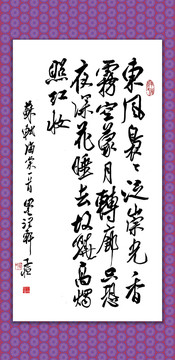 東風裊〻泛崇光香
霧空蒙月轉廊只恐
夜深花睡去故燒高燭
照紅妝
蘇軾海棠一首